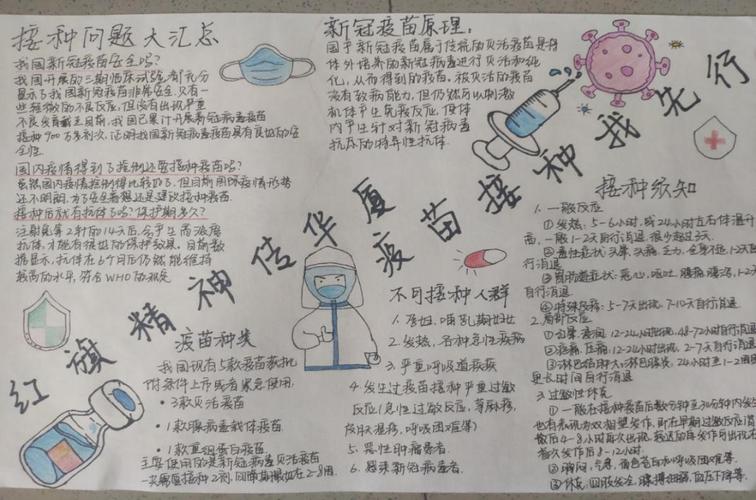 接种问题大汇总
我国新冠疫苗安全吗?
我国开展的三期临床试验, 充分
显示了我国新冠疫苗非常安全, 只有一
些轻微的不良反应, 但没有出现严重
不良反应截至目前, 我国已累计开展新冠病毒疫苗
接种900万多剂次, 证明我国新冠病毒疫苗具有良好的安
全性.
国内疫情得到了控制还要接种疫苗吗?
虽然国内疫情控制得比较好了, 但目前国际疫情形势
还不明朗, 为了安全着想还是建议接种疫苗
接种后就有抗体了吗? 保护期多久?
注射完第2针的14天后, 会产生高浓度
抗体, 才能有很好的保护效果, 目前数
据显示, 抗体在6个月后仍然能维持
较高的水平, 符合WHO的规定
新冠疫苗原理:
国产新冠疫苗属于传统的灭活疫苗是
体外培养的新冠病毒进行灭活和纯
化, 从而得到的疫苗, 被灭活的疫苗
没有致病能力, 但仍然可以刺激
机体产生免疫反应, 使体
内产生针对新冠病毒
抗原的特异性抗体.
红旗精神传华厦 疫苗接种我先行
疫苗种类
我国现有5款疫苗获批
附条件上市或者紧急使用.
• 3款灭活疫苗
• 1款腺病毒载体疫苗
• 1款重组蛋白疫苗
主要使用的是新冠病毒灭活疫苗
一共需要接种2剂, 间隔
不可接种人群
1. 孕妇, 哺乳期妇女
2. 发热, 各种急性疾病
3. 严重呼吸道疾病
4. 发生过疫苗接种严重过敏
反应(急性过敏反应, 荨麻疹,
皮肤湿疹, 呼吸困难等)
5. 恶性肿瘤患者.
6. 感染新冠病毒者.
接种须知
1. 一般反应
① 发热: 5-6小时, 或24小时左右体温升
高, 一般1-2天自行消退, 很少超过3天.
② 毒性症状: 头晕, 头痛, 乏力, 全身不适, 1-2天
自行消退
③ 胃肠道症状: 恶心, 呕吐, 腹痛, 腹泻, 1-2天
自行消退
④ 特殊反应: 5-7天出现, 7-10天自行消退
2. 局部反应
① 红晕, 浸润: 12-24小时出现, 48-72小时自行消
② 疼痛, 压痛: 12-24小时出现, 2-7天自行消
③ 淋巴结肿大, 淋巴腺炎, 24小时至1-2周
更长时间自行消退
3. 过敏性休克
① 一般在接种疫苗后数分钟至30分钟内发
也有表现为双相型发作, 即在早期过敏反应
散后4-8小时再次出现,
首次发作后8-12小时